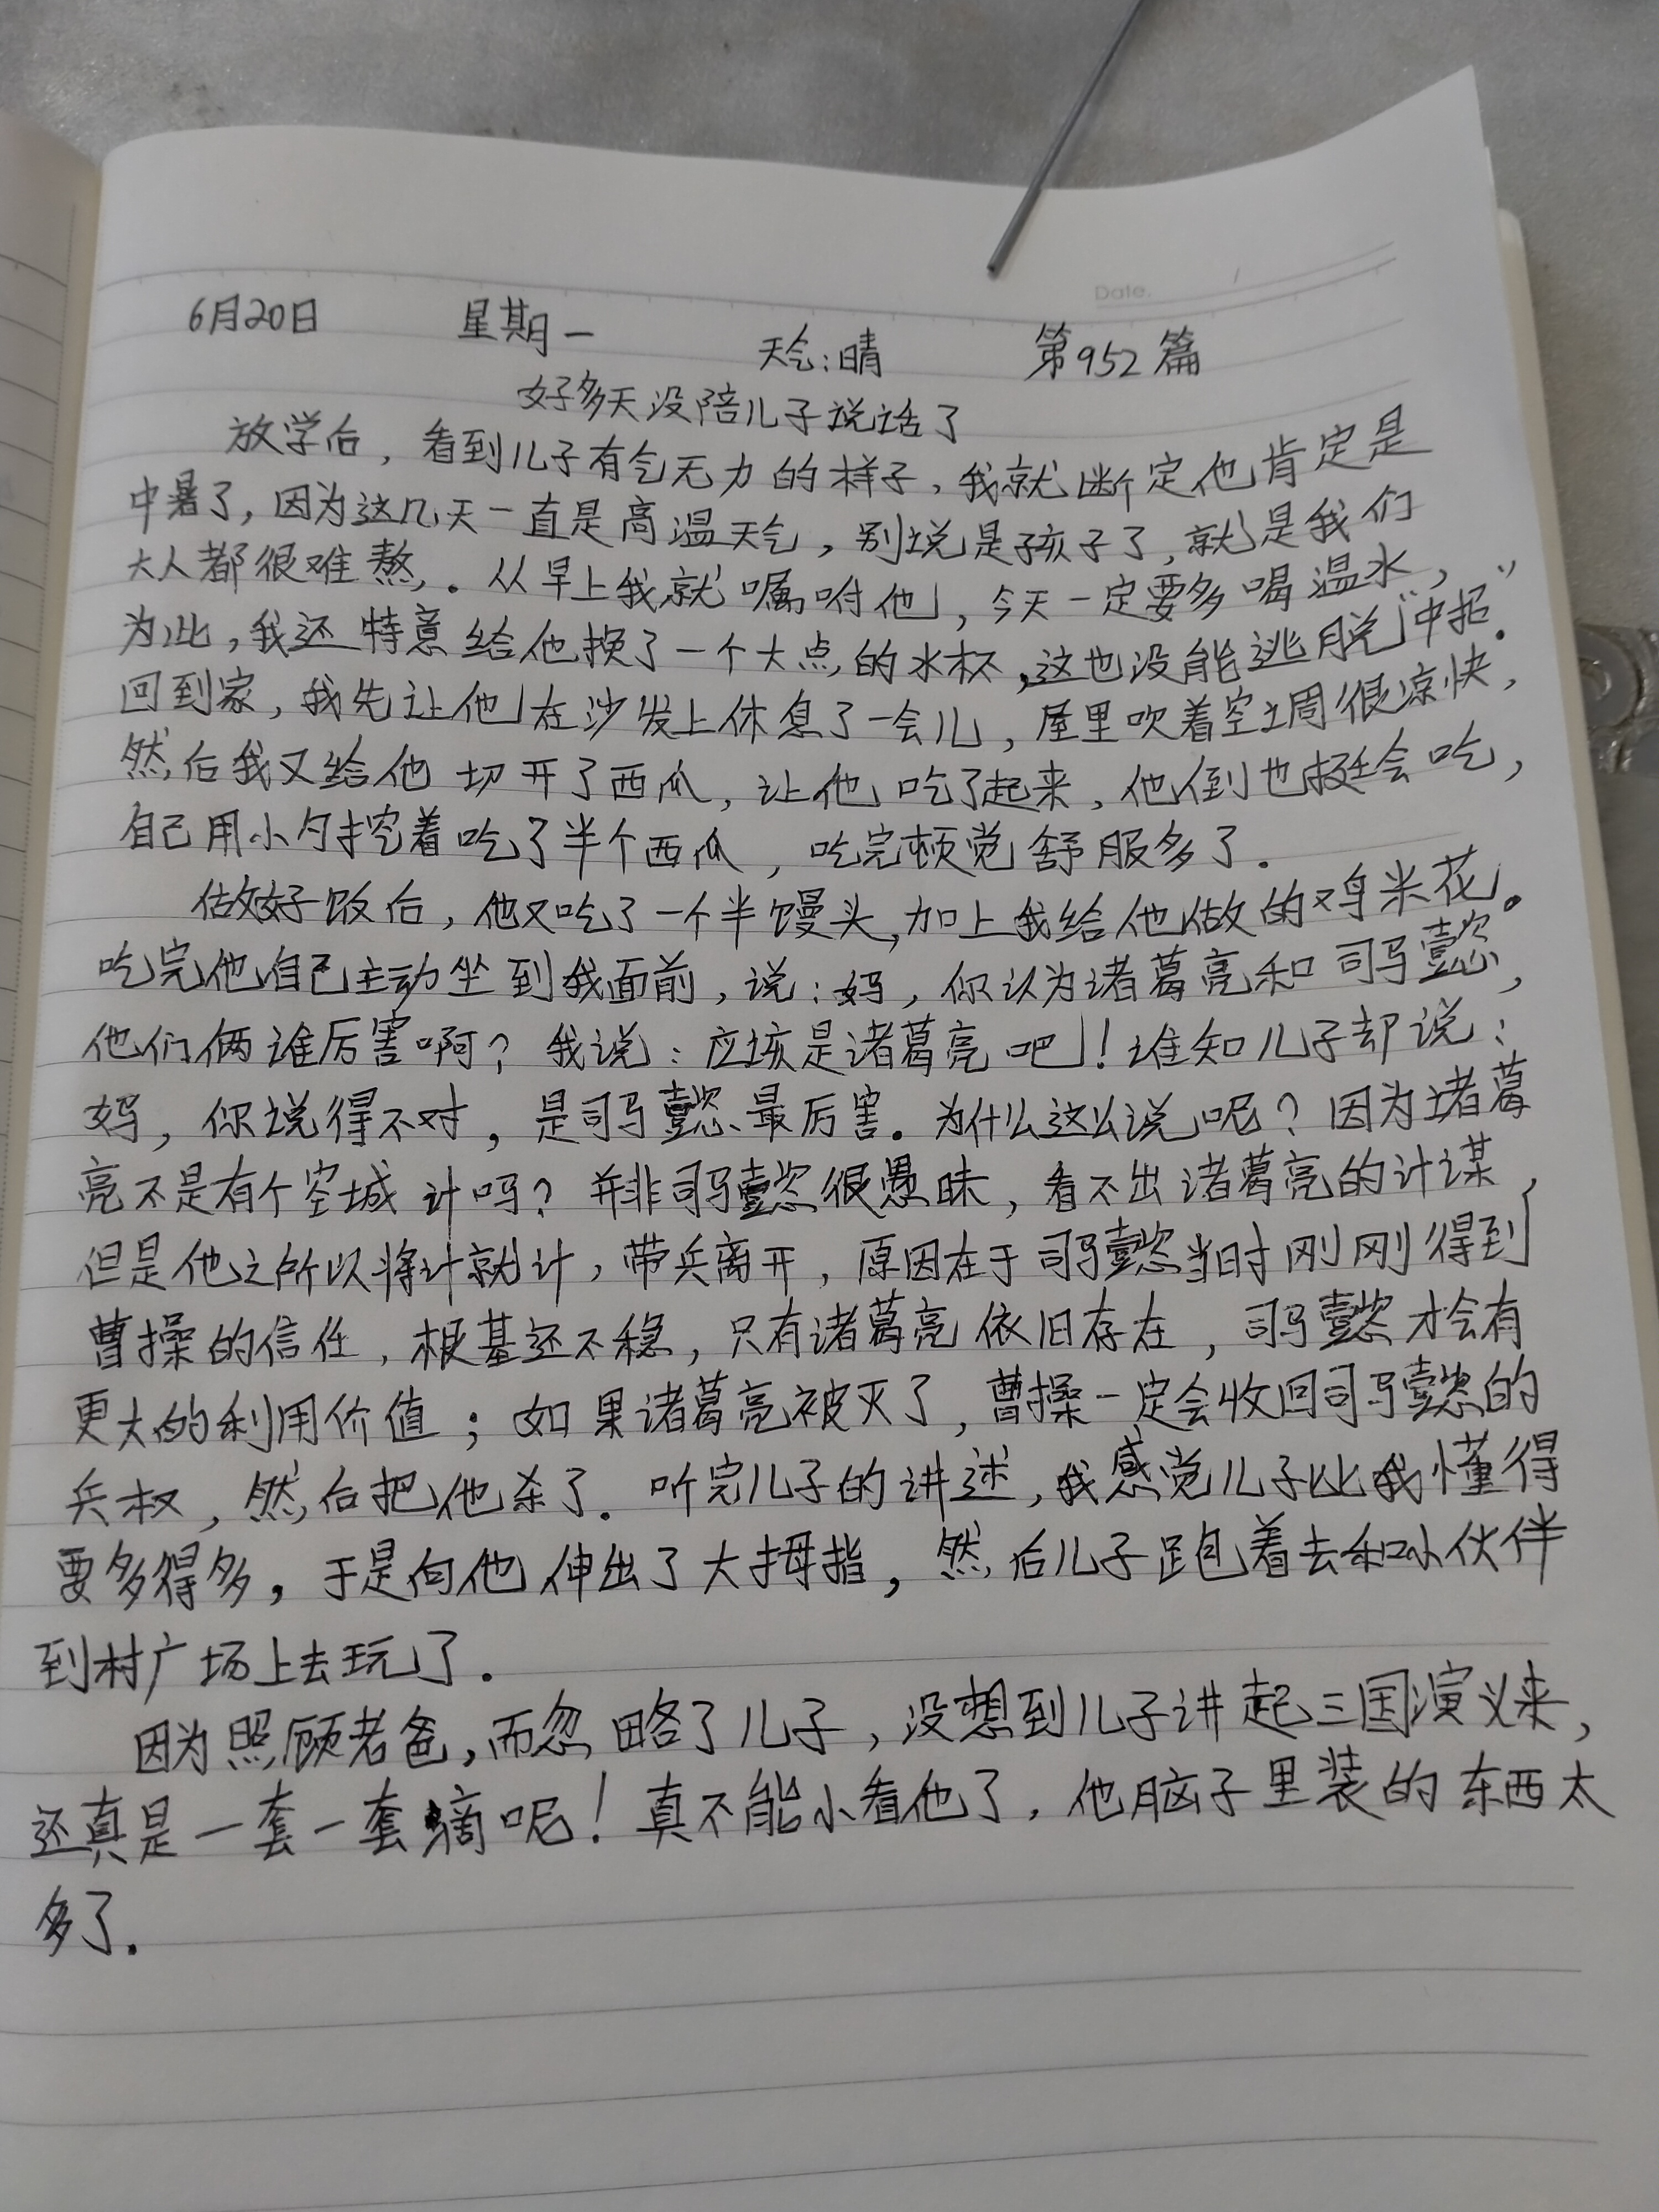 Date.
6月20日 星期一 天气:晴 第952篇
好多天没陪儿子说话了
放学后，看到儿子有气无力的样子，我就断定他肯定是
中暑了，因为这几天一直是高温天气，别说是孩子了，就是我们
大人都很难熬。从早上我就嘱咐他，今天一定要多喝温水，
为此，我还特意给他换了一个大点的水杯，这也没能逃脱"中招"。
回到家，我先让他在沙发上休息了一会儿，屋里吹着空调很凉快，
然后我又给他切开了西瓜，让他吃了起来，他倒也挺会吃，
自己用小勺挖着吃了半个西瓜，吃完顿觉舒服多了。
做好饭后，他又吃了一个半馒头，加上我给他做的鸡米花。
吃完他自己主动坐到我面前，说：妈，你认为诸葛亮和司马懿，
他们俩谁厉害啊？我说：应该是诸葛亮吧！谁知儿子却说：
妈，你说得不对，是司马懿最厉害。为什么这么说呢？因为诸葛
亮不是有个空城计吗？并非司马懿很愚昧，看不出诸葛亮的计谋，
但是他之所以将计就计，带兵离开，原因在于司马懿当时刚刚得到
曹操的信任，根基还不稳，只有诸葛亮依旧存在，司马懿才会有
更大的利用价值；如果诸葛亮被灭了，曹操一定会收回司马懿的
兵权，然后把他杀了。听完儿子的讲述，我感觉儿子比我懂得
要多得多，于是向他伸出了大拇指，然后儿子跑着去和小伙伴
到村广场上去玩了。
因为照顾老爸，而忽略了儿子，没想到儿子讲起三国演义来，
还真是一套一套嘀呢！真不能小看他了，他脑子里装的东西太
多了。